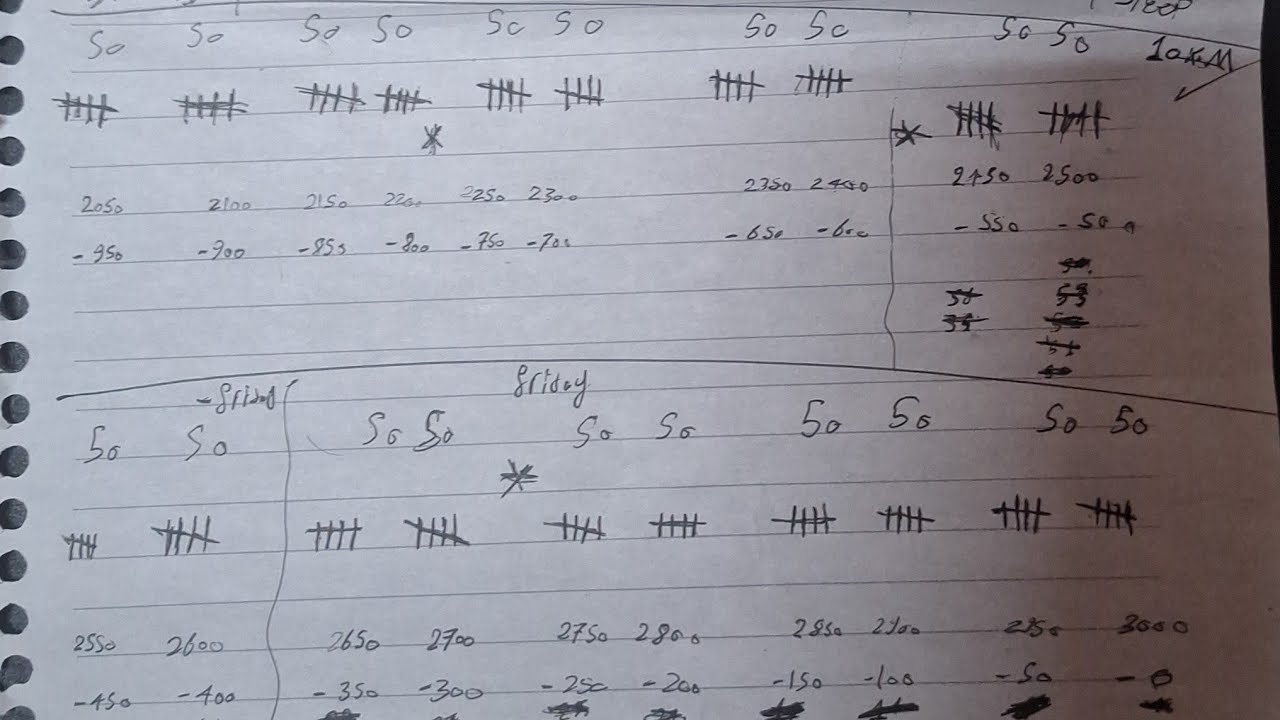 50 50 50 50 50 50 50 50 50 50
10KM
2050 2100 2150 2200 2250 2300 2350 2400 2450 2500
-950 -900 -850 -800 -750 -700 -650 -600 -550 -500
-friday friday
50 50 50 50 50 50 50 50 50 50
2550 2600 2650 2700 2750 2800 2850 2900 2950 3000
-450 -400 -350 -300 -250 -200 -150 -100 -50 -0